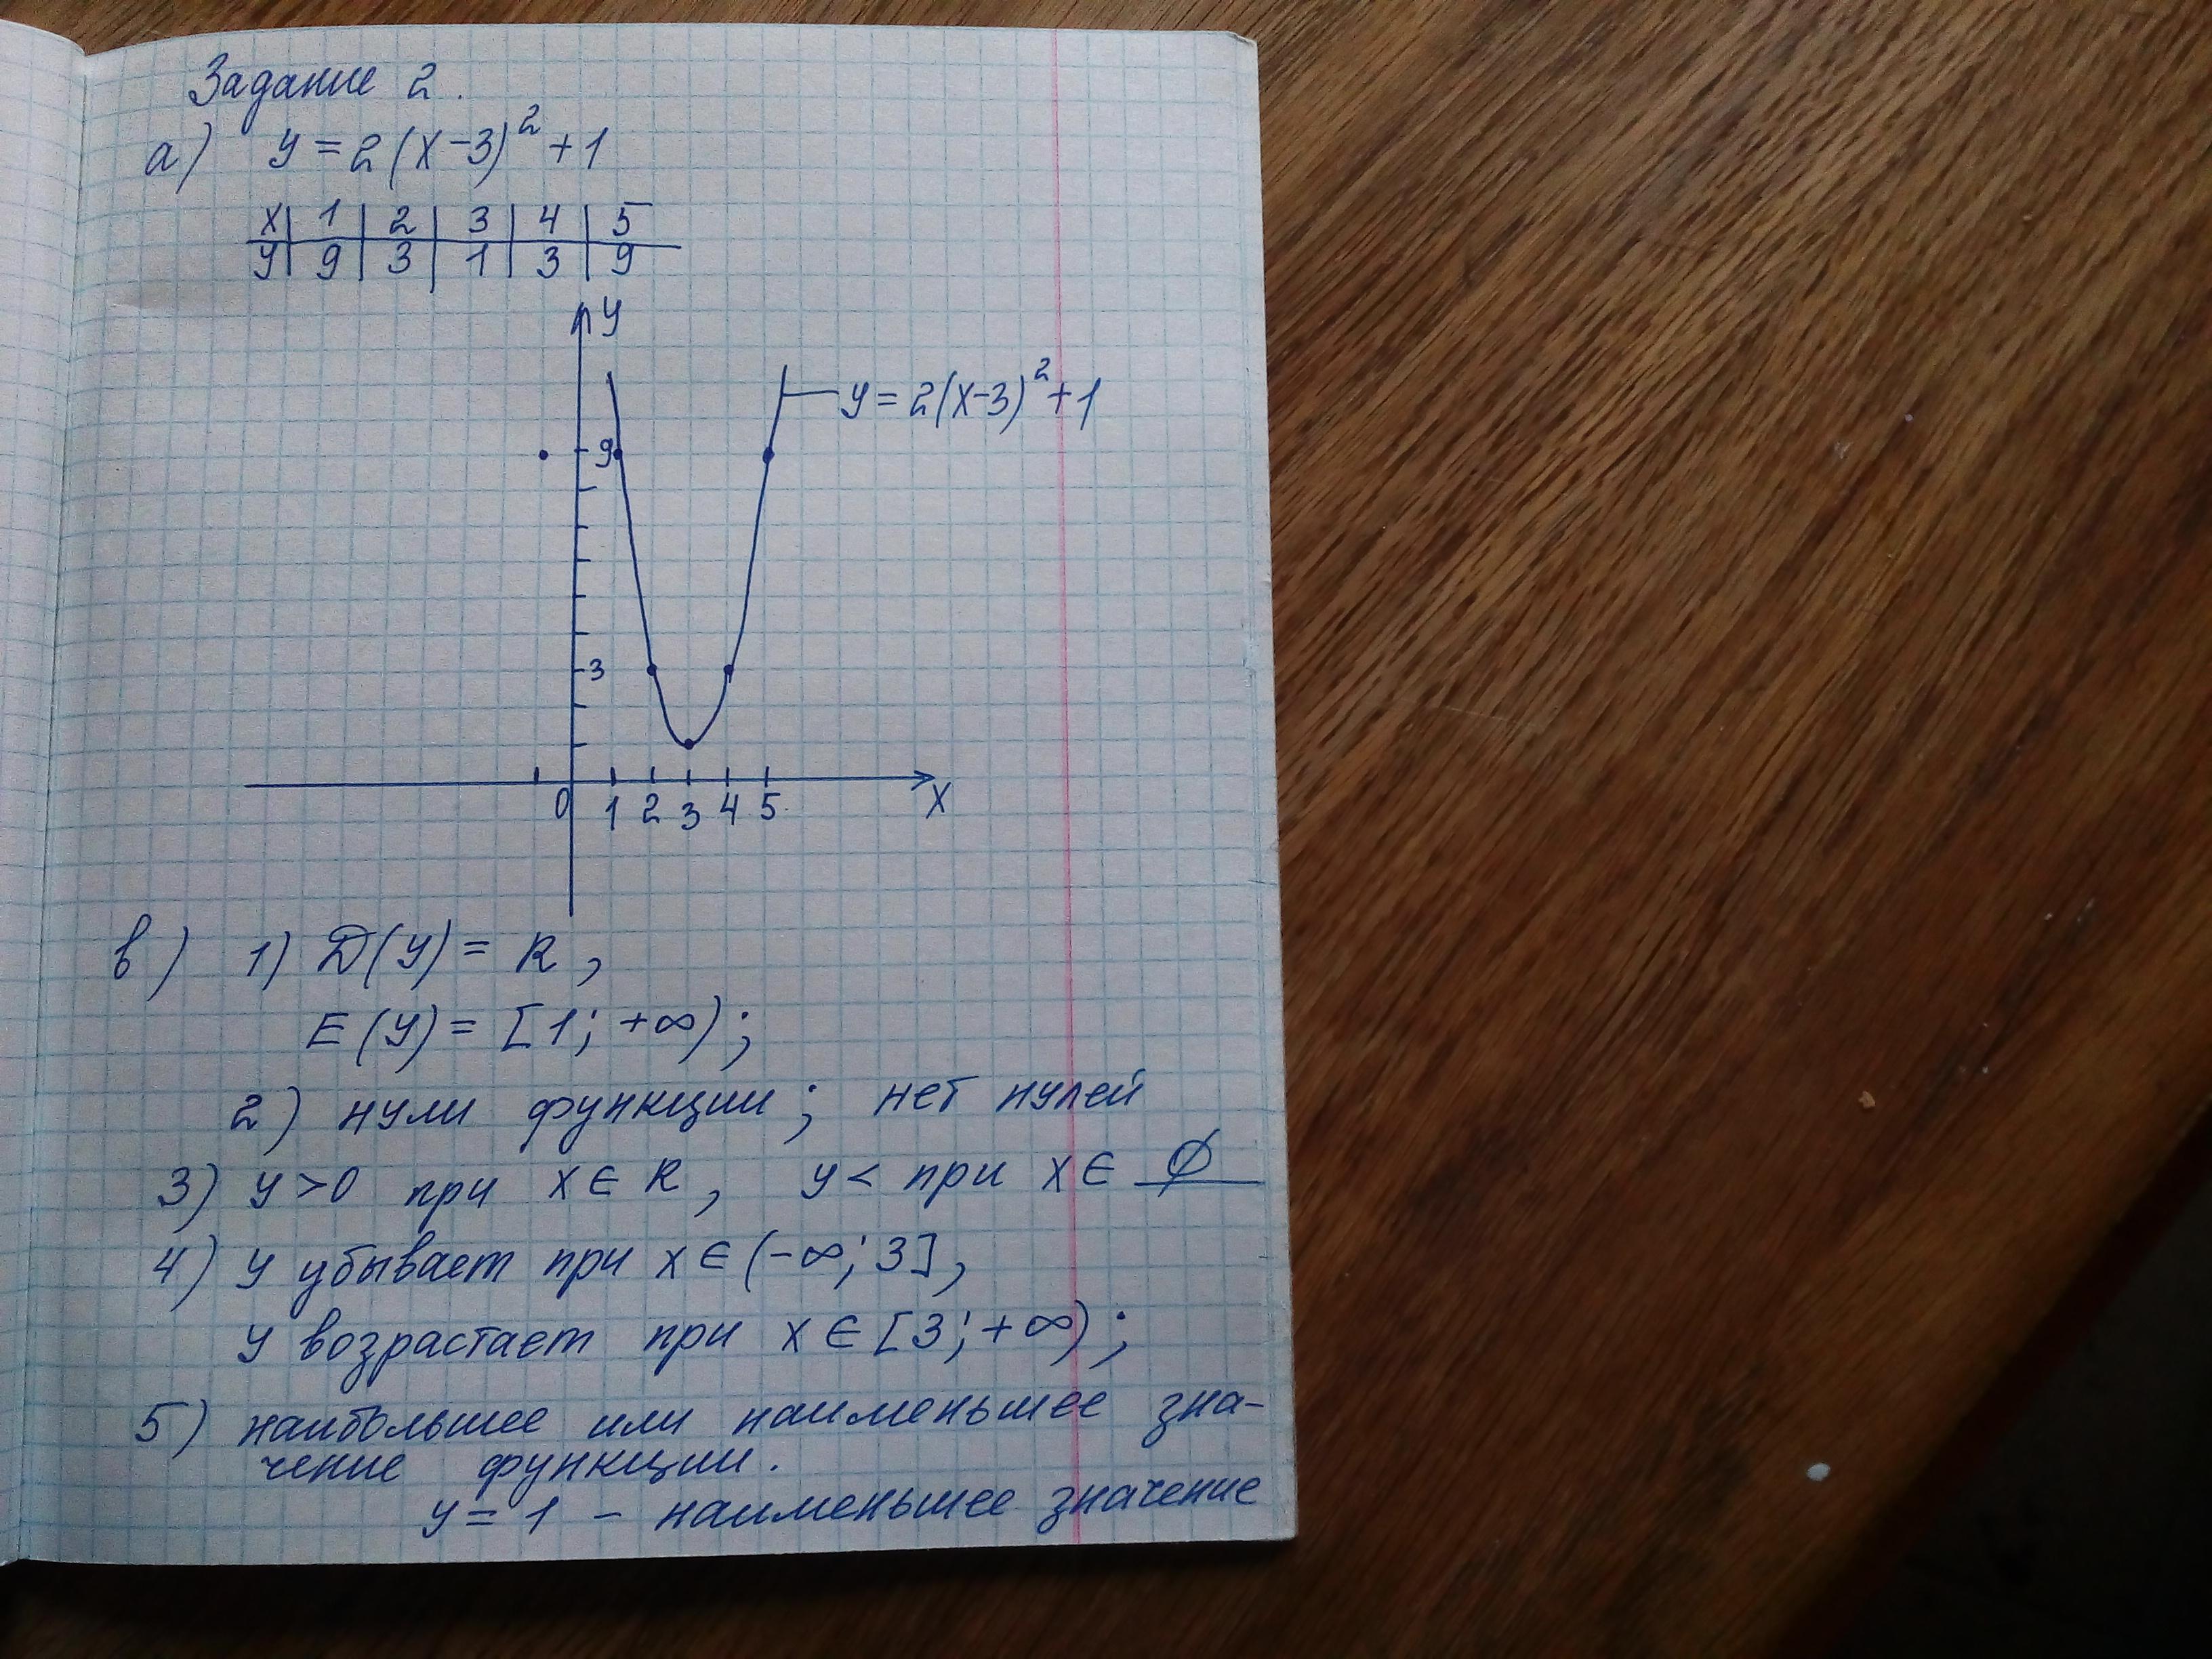 Задание 2.
а) y = 2(x-3)² + 1
x | 1 | 2 | 3 | 4 | 5
y | 9 | 3 | 1 | 3 | 9
y
y = 2(x-3)² + 1
9
3
0 1 2 3 4 5 x
в) 1) D(y) = R,
E(y) = [1; +∞);
2) нули функции; нет нулей
3) y > 0 при x ∈ R, y < при x ∈ ∅
4) y убывает при x ∈ (-∞; 3],
y возрастает при x ∈ [3; +∞);
5) наибольшее или наименьшее зна-
чение функции.
y = 1 - наименьшее значение